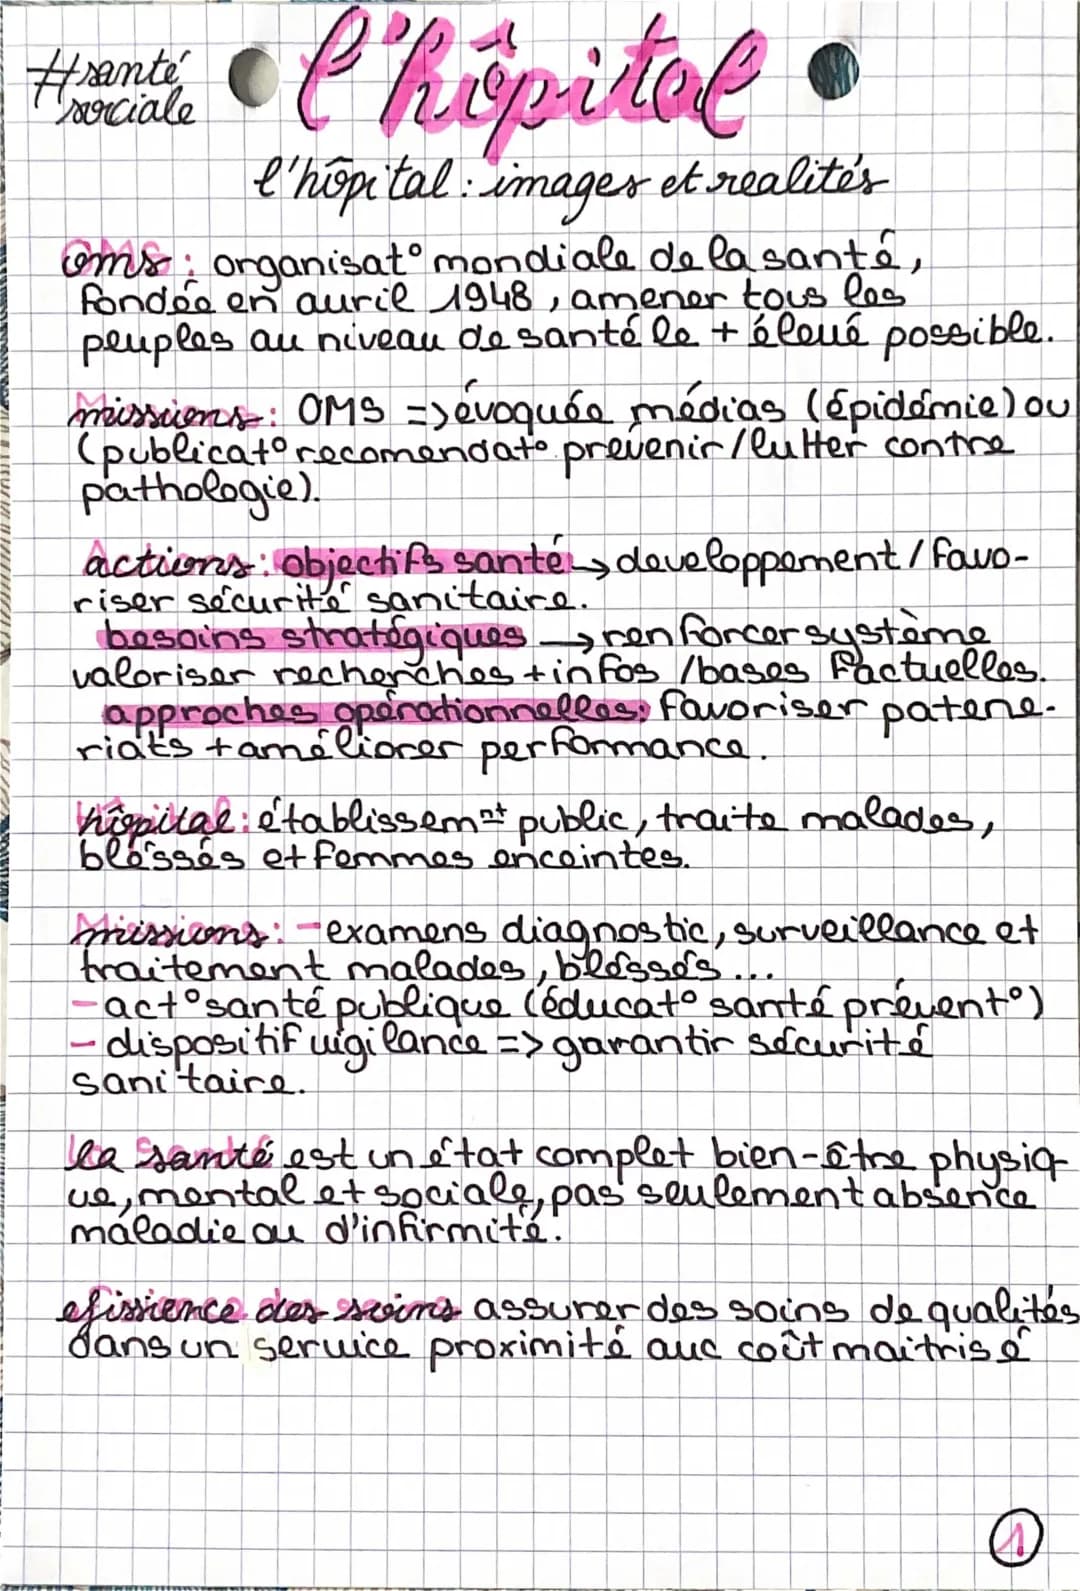 #santé
sociale
l'hôpital
l'hôpital : images et realités
oms : organisat° mondiale de la santé,
fondée en avril 1948, amener tous les
peuples au niveau de santé le + élevé possible.
missions : OMS => évoquée médias (épidémie) ou
(publicat° recomendat° prévenir/lutter contre
pathologie).
actions : objectifs santé → developpement / favo-
riser sécurité sanitaire.
besoins stratégiques → renforcer système
valoriser recherches + infos / bases factuelles.
approches opérationnelles : favoriser patene-
riats + améliorer performance.
hôpital : établissemnt public, traite malades,
bléssés et femmes enceintes.
Missions : - examens diagnostic, surveillance et
traitement malades, bléssés ...
- act° santé publique (éducat° santé prévent°)
- dispositif vigilance => garantir sécurité
sanitaire.
la santé est un état complet bien-être physiq
ue, mental et sociale, pas seulement absence
maladie ou d'infirmité.
efissience des soins assurer des soins de qualités
dans un service proximité auc coût maitrisé
1